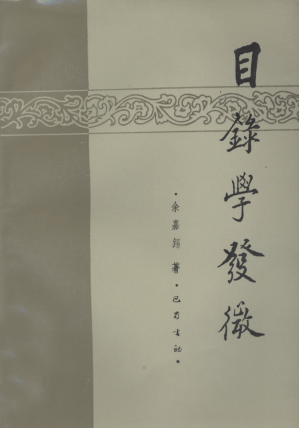 目錄學發微
·余嘉錫著·巴蜀書社·